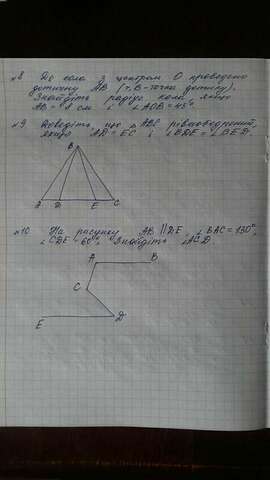 №8 До кола з центром О проведено
дотичну АВ (т.В-точка дотику).
Знайдіть радіус кола якщо
АВ = 8 см і ∠АОВ=45°.
№9 Доведіть, що △АВС рівнобедрений,
якщо АD=ЕС і ∠ВDЕ=∠ВЕD.
В
А D Е С
№10 На рисунку АВ∥DЕ, ∠ВАС=130°,
∠СDЕ=60°. Знайдіть ∠АСD.
А В
С
Е D